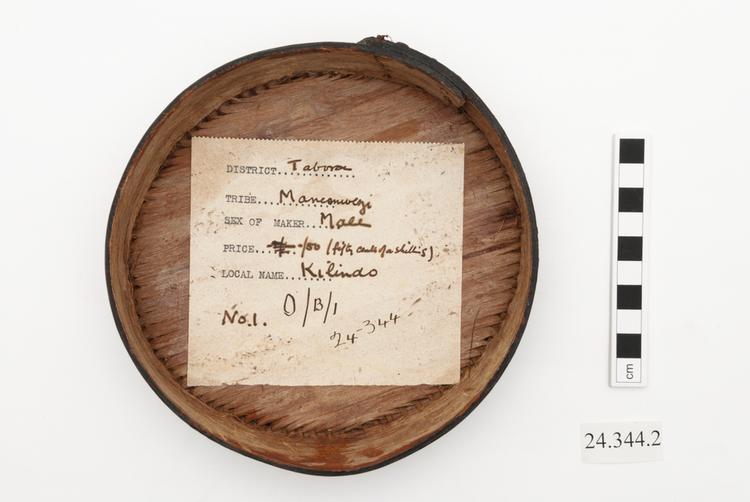 DISTRICT....Tabora
TRIBE....Manyamwezi
SEX OF MAKER...Male
PRICE....-/50 (fifty cents of a shilling)
LOCAL NAME...Kilindo
No.1. O/B/1
24-344
cm
24.344.2